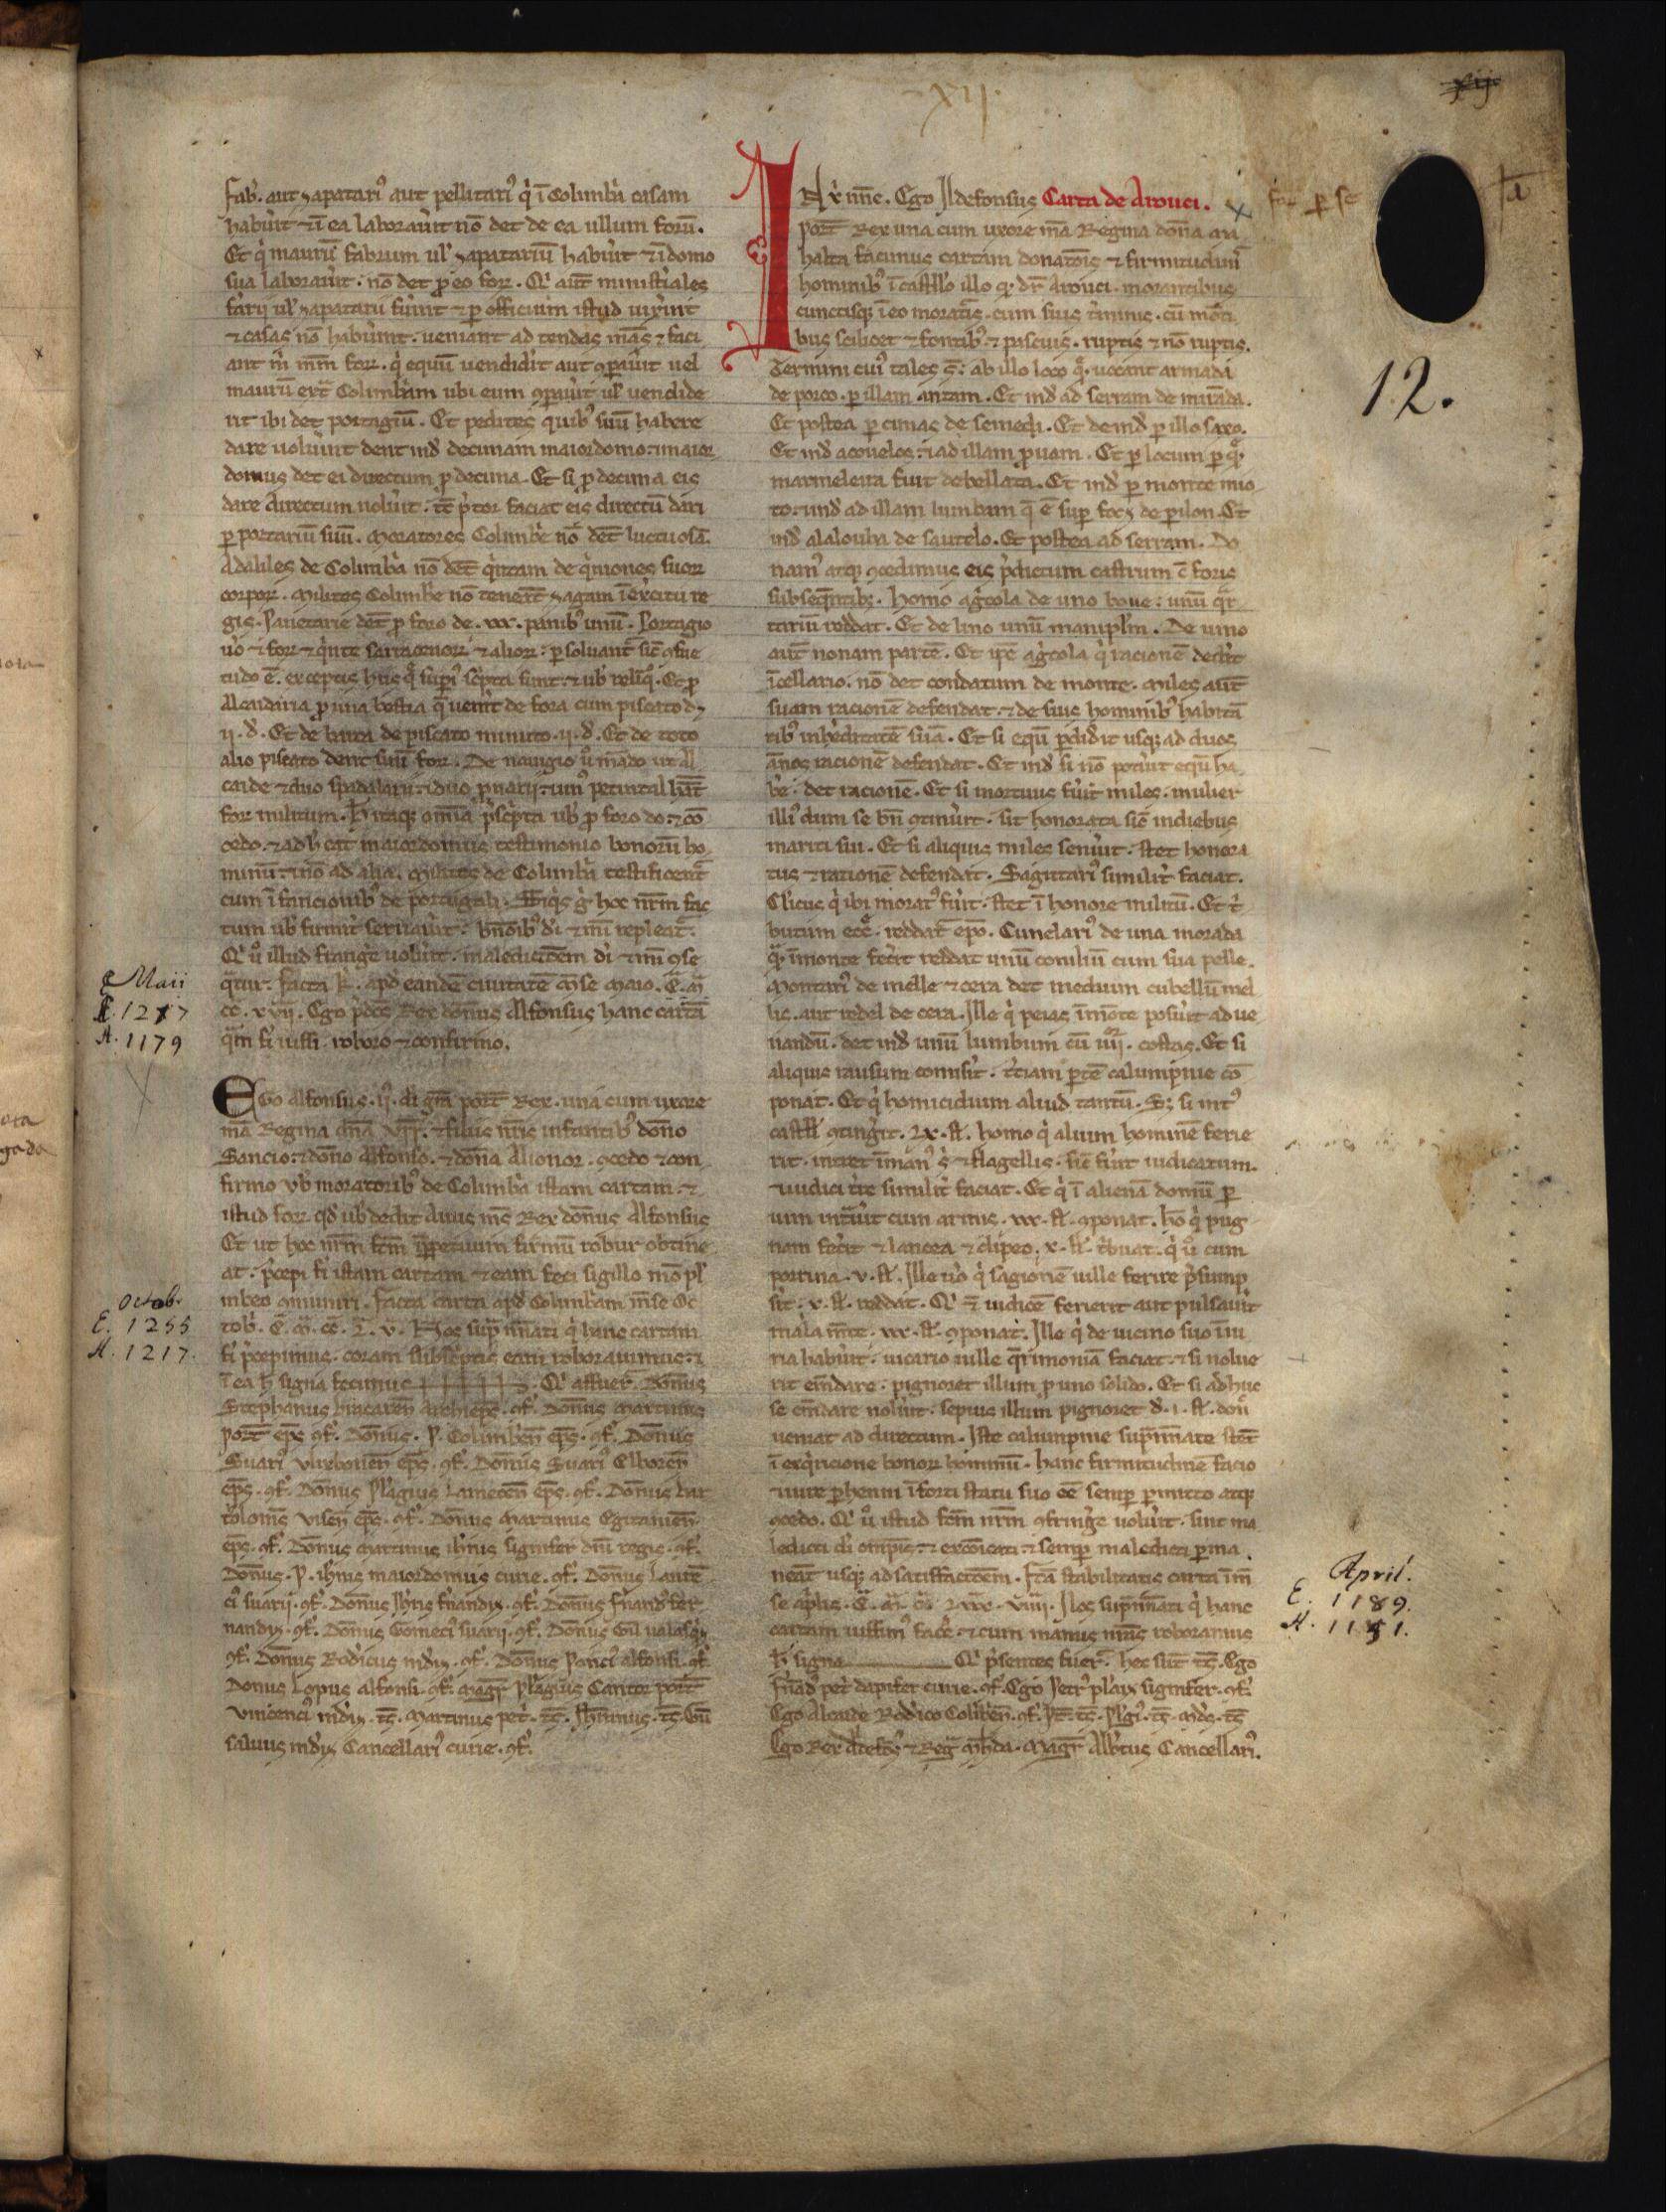 ·XII·
xij
Fab̃. aut zapatari᷒ aut pellitari᷒ q̇ ĩ Columbr̃ casam
habũit ⁊ ĩ ea laborauĩt nõ det de ea ullum forũ.
Et q̇ maurũ fabrum ul̃ zapatariũ habũit ⁊ ĩ domo
sua laborauĩt. nõ det p̱ eo foꝝ. Qi aũt ministiales
farij ul̃ zapatarij fũint ⁊ p̱ officium istud uixĩnt
⁊ casas nõ habũint. ueniant ad tendas mãs ⁊ faci
ant m̃ mm̃ foꝝ. q̇ equũ uendidĩt aut ꝯparauĩt uel
maurũ ext̃ Columbr̃am ubi eum ꝯparauĩt ul̃ uendide
rit ibi det portagiũ. Et pedites quib᷒ suũ habere
dare uolũint dent ind̃ decimam maiordomo: ⁊ maior
domus det ei directum p̱ decima. Et si p̱ decima eis
dare directum nolũit. tc̃ p̃tor faciat eis directũ dari
p̱ portariũ suũ. Moratores Columbr̃e nõ dẽt luctuosã.
Adaliles de Columbr̃a nõ dẽt q̇ntam de q̇niones suoꝝ
corpoꝝ. Milites Columbr̃e nõ tenerẽt zagam ĩ exercitu re
gis. Panetarie dẽt p̱ foro de .xxx. panib᷒ unũ. Portagio
ũo ⁊ foꝝ ⁊ q̇nte sarracenoꝝ ⁊ alioꝝ: p̱soluant᷑ sic̃ ꝯsue
tudo ẽ. exceptis hiis q̃ sup̱i᷒ sc̃pta sunt: ⁊ ub̃ relĩq̃. Et p̱
Alcaidaria p̱ una bestia q̃ uenĩt de fora cum piscato dẽt
ij. d̃. Et de barca de piscato minuto .ij. d̃. Et de toto
alio piscato dent suũ foꝝ. De nauigio ũ mãdo ut al
caide ⁊ duo spadalarij: ⁊ duo p̱narij: ⁊ un᷒ petintal hñt
foꝝ militum. H̃ itaq̃ om̃ia p̃sc̃pta ub̃ p̱ foro do: ⁊ cõ
cedo. ⁊ ad h̃ eat maiordomus testimonio bonorũ ho
minũ: ⁊ nõ ad alia. Milites de Columbr̃ testificent᷑
cum ĩfancionib᷒ de portugali. Quiq̃s g̃ hoc nr̃m fac
tum ub̃ firmit̃ seruauĩt: bñdc̃oib᷒ dĩ ⁊ mĩ repleat᷑.
Qi ũ illud frang̃e uolũit. maledictõem dĩ ⁊ mĩ ꝯse
quat᷑. Facta k̃. ap̱d eandẽ ciuitatẽ m̃se maio. E᷑. M᷑
cc᷑. xvij᷑. Ego p̃dc̃s Rex domñus Alfonsus hanc cartã
quam fĩ iussi. roboro ⁊ confirmo.
Maii
E. 1217
A. 1179
Ego Alfonsus. ij. dĩ grã port̃ Rex. una cum uxore
mã Regina dña Vrr̃. ⁊ filiis nr̃is infantib᷒ donño
Sancio: ⁊ donño Alfonso. ⁊ donña Alionor. ꝯcedo ⁊ con
firmo vb̃ moratorib᷒ de Columbr̃a istam cartam. ⁊
istud foꝝ qd̃ ub̃ dedit Auus m̃s Rex donñus Alfonsus
Et ut hoc nr̃m fc̃m ĩp̱petuum firmũ robur obtine
at. p̃cepi fĩ istam cartam ⁊ eam feci sigillo mõ pl̃
mbeo ꝯmuniri. Facta carta ap̱d Columbr̃am m̃se Oc
tob̃. E᷑. M᷑. cc᷑. L᷑. v᷑. Nos sup̱ nñati q̇ hanc cartam
fĩ p̃cepimus. coram subsc̃ptis eam roborauimus: ⁊
ĩ ea h̃ signa fecimus. Qi affuer̃. Donñus
Stephanus bracareñ archiep̃s. ꝯf̃. Donñus Martinus
port̃ ep̃s ꝯf̃. Donñus. P. Columbr̃eñ ep̃s. ꝯf̃. Donñus
Suari᷒ Vlixboneñ ep̃s. ꝯf̃. Donñus Suari᷒ Elboreñ
ep̃s. ꝯf̃. Donñus Pelagius Lameceñ ep̃s. ꝯf̃. Donñus Bar
tolome᷒ Viseñ ep̃s. ꝯf̃. Donñus Martinus Egitanieñ
ep̃s. ꝯf̃. Donñus Martinus ihñis signifer dñi regis. ꝯf̃.
Donñus. P. ihñis maiordomus curie. ꝯf̃. Donñus Laurẽ
ci᷒ suarij. ꝯf̃. Donñus Ihñis fñandiz. ꝯf̃. Donñus Fñand᷒ fer
nandiz. ꝯf̃. Donñus Gomeci᷒ suarij. ꝯf̃. Donñus Gil ualasq̃z
ꝯf̃. Donñus Rodicus mẽdiz. ꝯf̃. Donñus Ponci᷒ alfonsi. ꝯf̃.
Donus Lopus alfonsi. ꝯf̃. Magr̃ Pelagius Cantor port̃
Vincenci᷒ mẽdiz. ts̃. Martinus pet̃. ts̃. Ihñinus. ts̃. Gũ
saluus mẽdiz Cancellari᷒ curie. ꝯf̃.
Octob.
E. 1255
A. 1217.
IN xp̃i nñe. Ego Ildefonsus Carta de Arouci.
port̃ Rex una cum uxore mã Regina donña ma
halta facimus cartam donatõis ⁊ firmitudinĩ
hominib᷒ ĩ castello illo q̃ dr̃ Arouci. morantibus
cunctisq̃ ĩ eo moratis. cum suis t̃minis. cũ mõti
bus scilicet ⁊ fontib᷒. ⁊ pascuis. ruptis ⁊ nõ ruptis.
Termini cui᷒ tales s̃t: ab illo loco q̃. uocant armada
de porco. p̱ illam antam. Et ind̃ ad serram de mirãda.
Et postea p̱ cimas de semedi. Et de ind̃ p̱ illo saxo.
Et ind̃ acouelos: ⁊ ad illam p̱uam. Et p̱ locum p̱ q̃
marmeleira fuit debellata. Et ind̃ p̱ monte mio
to: ⁊ ind̃ ad illam lumbam q̃ ẽ sup̱ foz de perilon. Et
ind̃ alalouba de sautelo. Et postea ad serram. Do
nam᷒ atq̃ ꝯcedimus eis p̃dictum castrum c̃ foris
subseq̃ntib̃. Homo ag̃cola de uno boue: unũ q̃r
tariũ reddat. Et de lino unũ manipl̃m. De uino
aũt nonam partẽ. Et ip̃e ag̃cola q̇ racionẽ dedĩt
ĩcellario. nõ det condatum de monte. Miles aũt
suam racionẽ defendat. ⁊ de suis hominib᷒ habitã
tib᷒ inhẽditatẽ suã. Et si equũ p̱didĩt usq̃ ad duos
ãnos racionẽ defendat. Et ind̃ si nõ potũit equũ ha
b̃e. det racionẽ. Et si mortuus fũit miles. mulier
illi᷒ dum se bñ ꝯtinũit. sit honorata sic̃ indiebus
mariti sui. Et si aliquis miles senũit. stet honora
tus ⁊ rationẽ defendat. Sagitari᷒ similit̃ faciat.
Cl̃icus q̇ ibi morat᷒ fũit. stet ĩ honore militũ. Et t̃
butum ecc̃e. reddat ep̃o. Cunelari᷒ de una morada
q̃. ĩ monte fec̃it reddat unũ coniliũ cum sua pelle.
Montari᷒ de melle ⁊ cera det medium cubellũ mel
lis. aut redel de cera. Ille q̇ peias ĩ mõte posũit ad ue
nandũ. det ind̃ unũ lumbum cũ iiij. costis. Et si
aliquis rausum comisĩt. t̃ciam p̱tẽ calumpnie cõ
ponat. Et q̇ homicidium aliud tantũ. S; si int᷒
castell̃ ꝯting̃it. LX. sl̃. Homo q̇ alium hominẽ ferie
rit. intret ĩ man᷒ ẽi᷒ ⁊ flagellis. sic̃ fũit iudicatum.
⁊ iudici tr̃e similit̃ faciat. Et q̇ ĩ alienã domũ p̱
uim intrauĩt cum armis. xxx. sl̃. ꝯponat. hõ q̇ pug
nam fec̃it ⁊ lancea ⁊ clipeo. x. sl̃. t̃buat. q̇ ũ cum
porrina. v. sl̃. Ille ũo q̇ sagionẽ uille ferire p̃sump
sĩt. v. sl̃. reddat. Qi ⁊ iudicẽ ferierit aut pulsauĩt
mala mẽte. xxx. sl̃. ꝯponat. Ille q̇ de uicino suo ĩiu
ria habũit: uicario uille q̃rimoniã faciat: ⁊ si nolue
rit emẽdare: pignoret illum p̱ uno solido. Et si adhuc
se emẽdare nolũit. sepius illum pignoret d̃. i. sl̃. don̄
ueniat ad directum. Iste calumpnie sup̱nñate stẽt
ĩ exq̇sicione bonoꝝ hominũ. Hanc firmitudinẽ facio
⁊ iure p̱henni ĩforti statu suo ẽe semp̱ p̱mitto atq̃
ꝯcedo. Qi ũ istud fc̃m nr̃m ꝯfring̃e uolũit. sint ma
ledicti dĩ omp̃is: ⁊ excõicati: ⁊ semp̱ maledicti p̱ma
neãt usq̃ ad satisfactõem. Fc̃a stabilitatis carta ĩ m̃
se ap̃lis. E᷑. M᷑. C᷑. LXXX. VIIII. Nos sup̱nñati q̇ hanc
cartam iussim᷒ fac̃e. ⁊ cum manus nr̃as roboramus
h̃ signa Qi p̃sentes fuer̃. hec sũt ts̃. Ego
Fñãd᷒ pet̃ dapifer curie. ꝯf̃. Ego Petr᷒ pl̃aiz signifer. ꝯf̃.
Ego Alcaide Rodico Colĩbr̃ñ. ꝯf̃. Pet̃. ts̃. Pl̃gi᷒. ts̃. Mẽds. ts̃
Ego Rex Adefõs᷒ ⁊ Reg̃ Mhlda. Magr̃ Alb̃tus Cancellari᷒.
far p̱ se
12.
April.
E. 1189.
A. 1151.